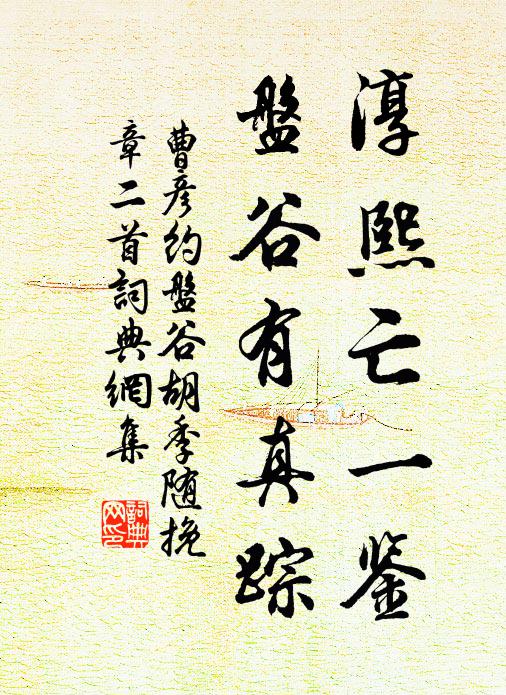 淳熙亡一鉴
盤谷有真踪
曹彦约盤谷胡季随挽
章二首詞典網集
詞典网印